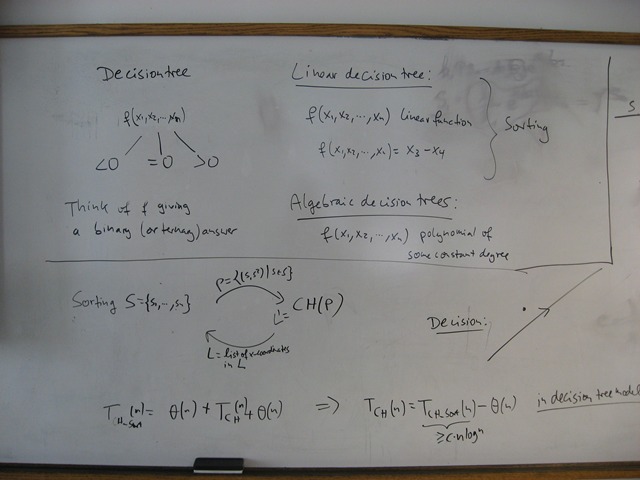 Decision tree
f(x₁,x₂,...,xₙ)
<0 =0 >0
Think of f giving
a binary (or ternary) answer
Linear decision tree:
f(x₁,x₂,...,xₙ) linear function
f(x₁,x₂,...,xₙ) = x₃ - x₄
Sorting
Algebraic decision trees:
f(x₁,x₂,...,xₙ) polynomial of
some constant degree
S
Sorting S={s₁,...,sₙ}
P={(s,s²) | s∈S}
L'= CH(P)
L = list of x-coordinates
in L
Decision:
T_CH-Sort(n) = Θ(n) + T_CH(n) + Θ(n) ⇒ T_CH(n) = T_CH-Sort(n) - Θ(n) in decision tree model
≥ c·n log n